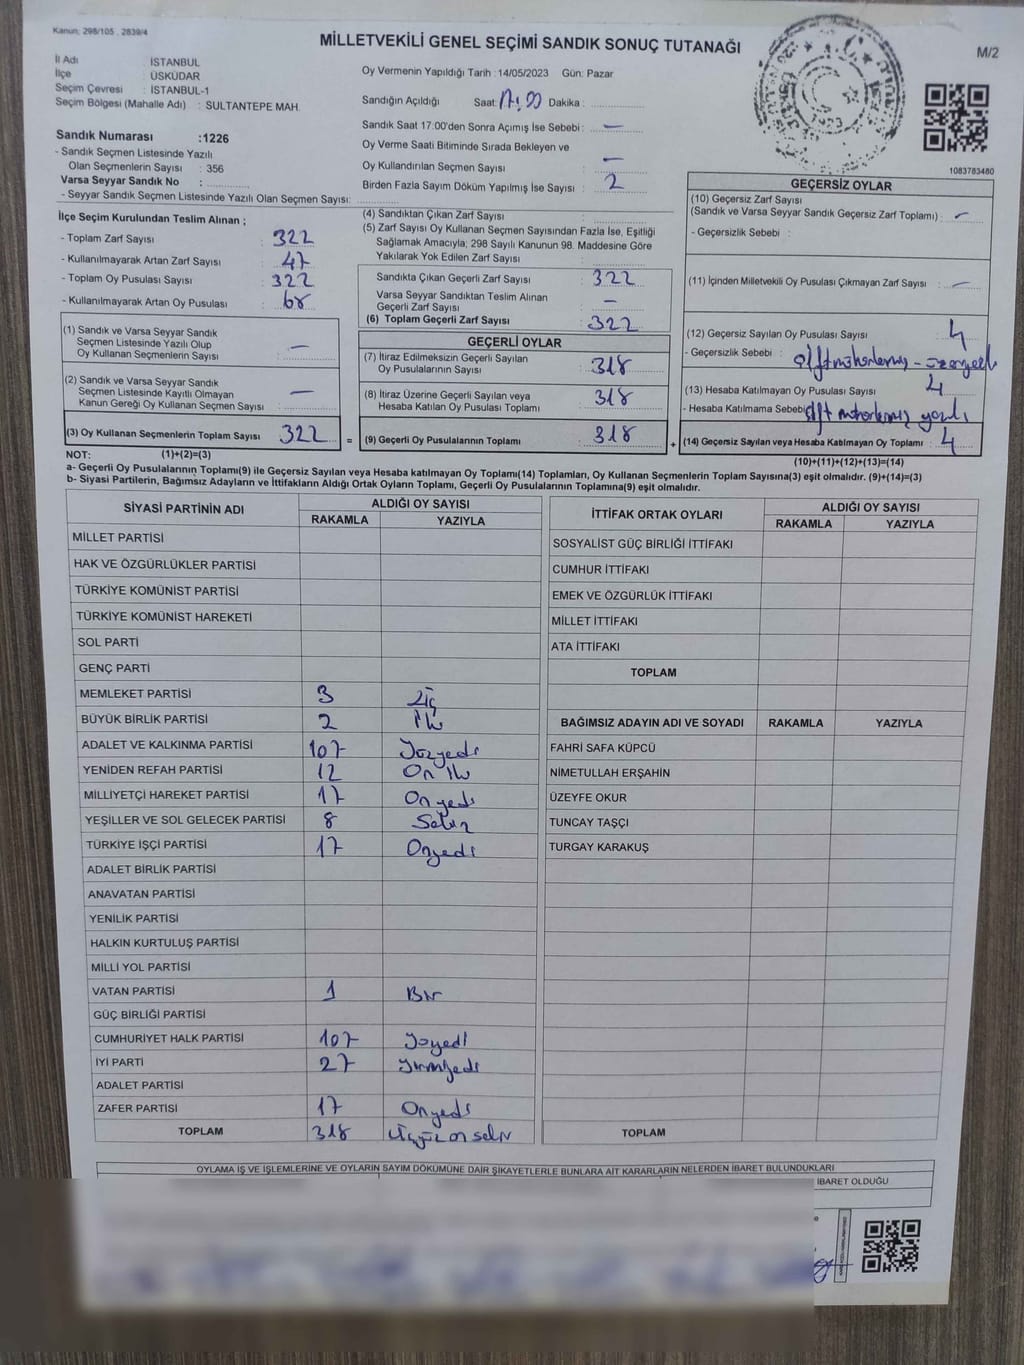 Kanun; 298/105 , 2839/4
MİLLETVEKİLİ GENEL SEÇİMİ SANDIK SONUÇ TUTANAĞI
M/2
İl Adı : İSTANBUL
İlçe : ÜSKÜDAR
Seçim Çevresi : İSTANBUL-1
Seçim Bölgesi (Mahalle Adı) : SULTANTEPE MAH.
Oy Vermenin Yapıldığı Tarih : 14/05/2023 Gün: Pazar
Sandığın Açıldığı Saat: 17:00 Dakika :
Sandık Saat 17:00'den Sonra Açımış İse Sebebi : —
Oy Verme Saati Bitiminde Sırada Bekleyen ve
Oy Kullandırılan Seçmen Sayısı : —
Birden Fazla Sayım Döküm Yapılmış İse Sayısı : 2
Sandık Numarası :1226
- Sandık Seçmen Listesinde Yazılı
Olan Seçmenlerin Sayısı : 356
Varsa Seyyar Sandık No :
- Seyyar Sandık Seçmen Listesinde Yazılı Olan Seçmen Sayısı:
1083783480
İlçe Seçim Kurulundan Teslim Alınan ;
- Toplam Zarf Sayısı : 322
- Kullanılmayarak Artan Zarf Sayısı : 47
- Toplam Oy Pusulası Sayısı : 322
- Kullanılmayarak Artan Oy Pusulası : 68
(1) Sandık ve Varsa Seyyar Sandık
Seçmen Listesinde Yazılı Olup
Oy Kullanan Seçmenlerin Sayısı : —
(2) Sandık ve Varsa Seyyar Sandık
Seçmen Listesinde Kayıtlı Olmayan
Kanun Gereği Oy Kullanan Seçmen Sayısı : —
(3) Oy Kullanan Seçmenlerin Toplam Sayısı : 322 =
(4) Sandıktan Çıkan Zarf Sayısı :
(5) Zarf Sayısı Oy Kullanan Seçmen Sayısından Fazla İse, Eşitliği
Sağlamak Amacıyla; 298 Sayılı Kanunun 98. Maddesine Göre
Yakılarak Yok Edilen Zarf Sayısı :
Sandıkta Çıkan Geçerli Zarf Sayısı : 322
Varsa Seyyar Sandıktan Teslim Alınan
Geçerli Zarf Sayısı : —
(6) Toplam Geçerli Zarf Sayısı : 322
GEÇERLİ OYLAR
(7) İtiraz Edilmeksizin Geçerli Sayılan
Oy Pusulalarının Sayısı : 318
(8) İtiraz Üzerine Geçerli Sayılan veya
Hesaba Katılan Oy Pusulası Toplamı : 318
(9) Geçerli Oy Pusulalarının Toplamı : 318 +
GEÇERSİZ OYLAR
(10) Geçersiz Zarf Sayısı
(Sandık ve Varsa Seyyar Sandık Geçersiz Zarf Toplamı) : —
- Geçersizlik Sebebi :
(11) İçinden Milletvekili Oy Pusulası Çıkmayan Zarf Sayısı : —
(12) Geçersiz Sayılan Oy Pusulası Sayısı : 4
- Geçersizlik Sebebi :
(13) Hesaba Katılmayan Oy Pusulası Sayısı : 4
- Hesaba Katılmama Sebebi:
(14) Geçersiz Sayılan veya Hesaba Katılmayan Oy Toplamı : 4
NOT: (1)+(2)=(3)
(10)+(11)+(12)+(13)=(14)
a- Geçerli Oy Pusulalarının Toplamı(9) ile Geçersiz Sayılan veya Hesaba katılmayan Oy Toplamı(14) Toplamları, Oy Kullanan Seçmenlerin Toplam Sayısına(3) eşit olmalıdır. (9)+(14)=(3)
b- Siyasi Partilerin, Bağımsız Adayların ve İttifakların Aldığı Ortak Oyların Toplamı, Geçerli Oy Pusulalarının Toplamına(9) eşit olmalıdır.
SİYASİ PARTİNİN ADI
ALDIĞI OY SAYISI
RAKAMLA YAZIYLA
MİLLET PARTİSİ
HAK VE ÖZGÜRLÜKLER PARTİSİ
TÜRKİYE KOMÜNİST PARTİSİ
TÜRKİYE KOMÜNİST HAREKETİ
SOL PARTİ
GENÇ PARTİ
MEMLEKET PARTİSİ 3 Üç
BÜYÜK BİRLİK PARTİSİ 2 İki
ADALET VE KALKINMA PARTİSİ 107 Yüzyedi
YENİDEN REFAH PARTİSİ 12 On iki
MİLLİYETÇİ HAREKET PARTİSİ 17 Onyedi
YEŞİLLER VE SOL GELECEK PARTİSİ 8 Sekiz
TÜRKİYE İŞÇİ PARTİSİ 17 Onyedi
ADALET BİRLİK PARTİSİ
ANAVATAN PARTİSİ
YENİLİK PARTİSİ
HALKIN KURTULUŞ PARTİSİ
MİLLİ YOL PARTİSİ
VATAN PARTİSİ 1 Bir
GÜÇ BİRLİĞİ PARTİSİ
CUMHURİYET HALK PARTİSİ 107 Yüzyedi
İYİ PARTİ 27 Yirmiyedi
ADALET PARTİSİ
ZAFER PARTİSİ 17 Onyedi
TOPLAM 318 Üçyüz on sekiz
İTTİFAK ORTAK OYLARI
ALDIĞI OY SAYISI
RAKAMLA YAZIYLA
SOSYALİST GÜÇ BİRLİĞİ İTTİFAKI
CUMHUR İTTİFAKI
EMEK VE ÖZGÜRLÜK İTTİFAKI
MİLLET İTTİFAKI
ATA İTTİFAKI
TOPLAM
BAĞIMSIZ ADAYIN ADI VE SOYADI RAKAMLA YAZIYLA
FAHRİ SAFA KÜPCÜ
NİMETULLAH ERŞAHİN
ÜZEYFE OKUR
TUNCAY TAŞÇI
TURGAY KARAKUŞ
TOPLAM
OYLAMA İŞ VE İŞLEMLERİNE VE OYLARIN SAYIM DÖKÜMÜNE DAİR ŞİKAYETLERLE BUNLARA AİT KARARLARIN NELERDEN İBARET BULUNDUKLARI
İBARET OLDUĞU